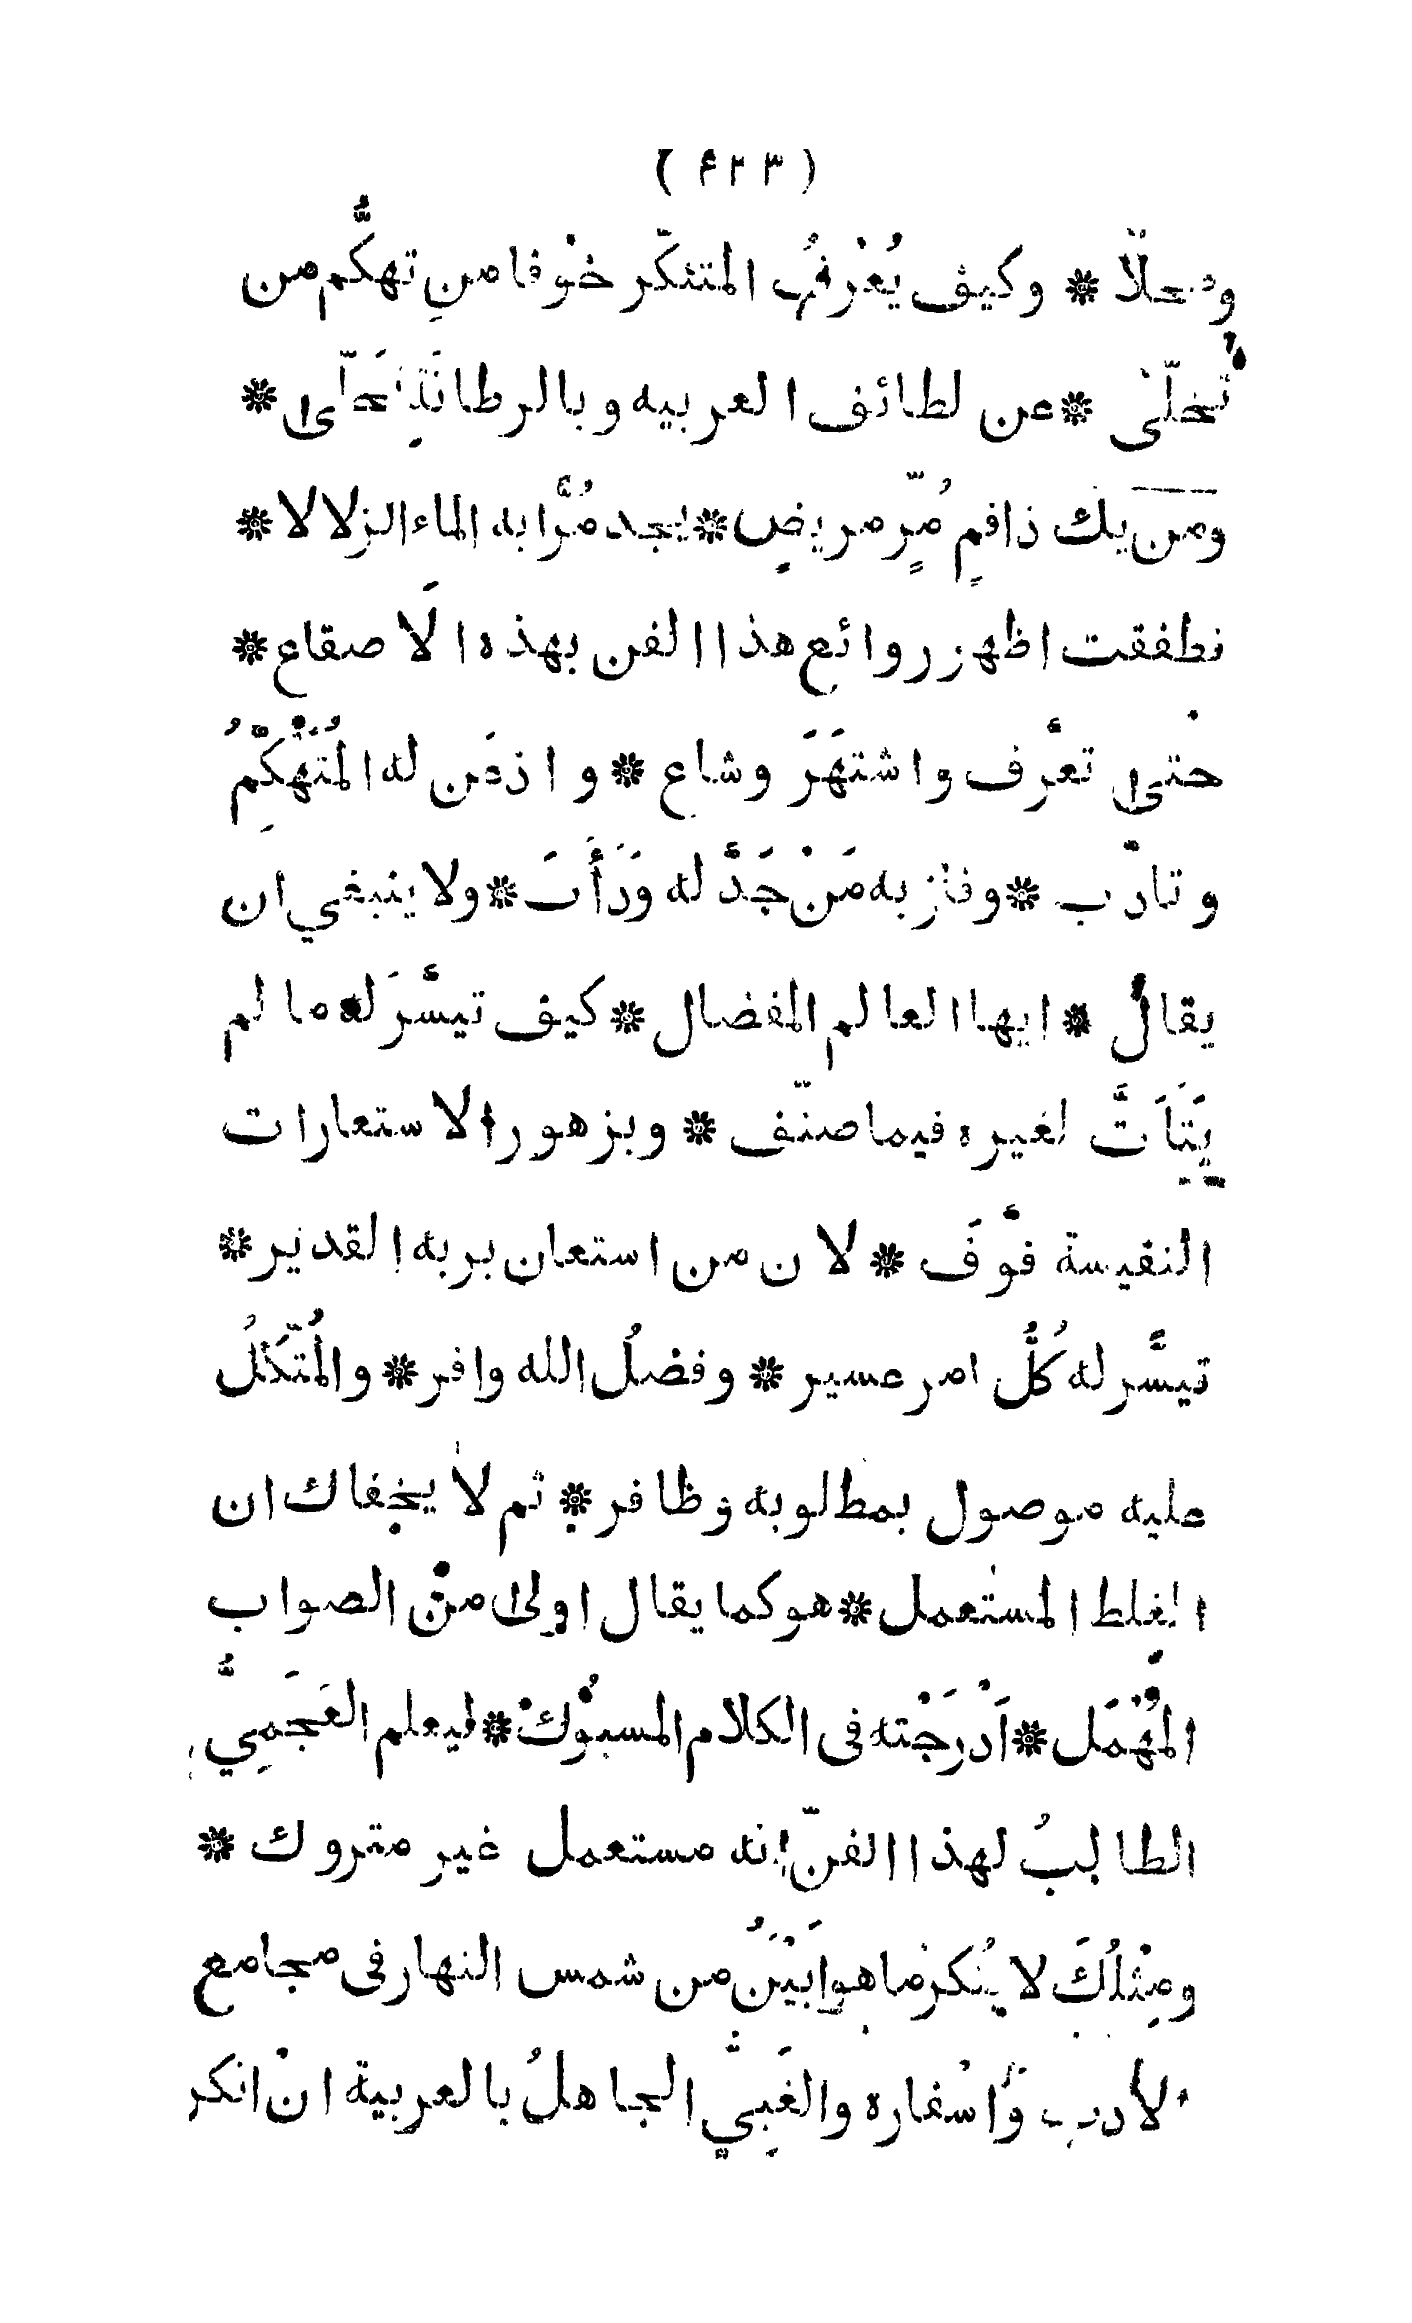 ( ۴۲۳ )
ومحلّا * وكيف يُعْرفُ المتنكّر خوْفا منِ تهكُّم من
تخلّىٰ * عن لطائف العربيه وبالرطانَةِ تَحلّى *
ومَن يك ذا فمٍ مُرٍّ مريضٍ * يجد مُرًّا به الماء الزلالا *
فطفقت اظهر روائع هذا الفن بهذه الَاصقاع *
حتى تعرَّف واشتهَرَ وشاع * واذعَن له المُتَهْكِّمُ
وتادّب * وفاز به مَنْ جَدَّ له وَدَأَبَ * ولا ينبغي ان
يقال * ايها العالم المفضال * كيف تيسَّرَ له ما لم
يَتَاَتَّ لغيره فيما صنّف * وبزهور الاستعارات
النفيسة فوَّفَ * لان من استعان بربه القدير *
تيسَّر له كُلُّ امر عسير * وفضلُ الله وافر * والمُتّكلُ
عليه موصول بمطلوبه وظافر * ثم لا يخفاك ان
الغلط المستعمل * هو كما يقال اولى من الصواب
المُهْمَل * اَدْرَجْته فى الكلام المسبُوْكْ * ليعلم العَجَمِيُّ
الطالبُ لهذا الفنّ انه مستعمل غير متروك *
ومِثْلُكَ لا يُنكر ما هو اَبْيَنُ من شمس النهار فى مجامع
الأدب وَاسْفاره والغَبِيُّ الجاهلُ بالعربية انْ انكر